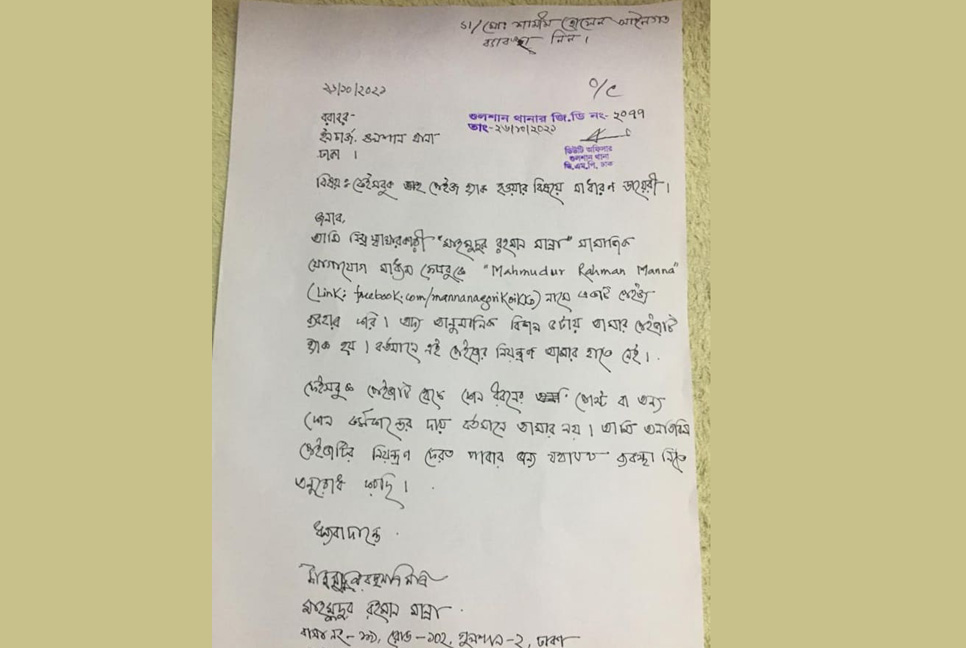 SI/ মোঃ শামীম হোসেন আইনগত
ব্যবস্থা নিন।
২৬/১০/২০২১
O/C
বরাবর-
ইনচার্জ, গুলশান থানা
ঢাকা।
গুলশান থানার জি.ডি নং- ২০৭৭
তাং-২৬/১০/২০২১
ডিউটি অফিসার
গুলশান থানা
ডি.এম.পি, ঢাকা
বিষয়ঃ ফেইসবুক পেইজ হ্যাক হওয়ার বিষয়ে সাধারণ ডায়েরী।
জনাব,
আমি নিম্ন স্বাক্ষরকারী "মাহমুদুর রহমান মান্না" সামাজিক
যোগাযোগ মাধ্যম ফেসবুকে "Mahmudur Rahman Manna"
(Link: facebook.com/mannanagorikoikko) নামে একটি পেইজ
ব্যবহার করি। অদ্য আনুমানিক বিকাল ৫টায় আমার পেইজটি
হ্যাক হয়। বর্তমানে এই পেইজের নিয়ন্ত্রণ আমার হাতে নেই।
ফেইসবুক পেইজটি থেকে কোন ধরনের পোস্ট বা অন্য
কোন কর্মকান্ডের দায় বর্তমানে আমার নয়। আমি
পেইজটির নিয়ন্ত্রণ ফেরত পাবার জন্য যথাযথ ব্যবস্থা নিতে
অনুরোধ করছি।
ধন্যবাদান্তে
মাহমুদুর রহমান মান্না
মাহমুদুর রহমান মান্না
বাসা নং- ১৯, রোড-১০২, গুলশান-২, ঢাকা